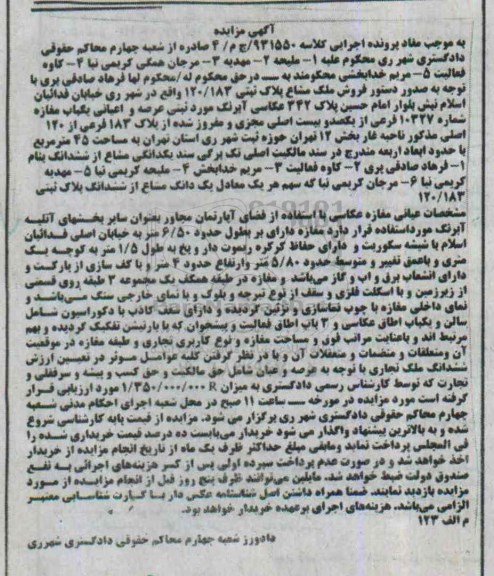 آگهی مزایده
به موجب مفاد پرونده اجرایی کلاسه ۹۳۱۵۵۰/ج م/ ۴ صادره از شعبه چهارم محاکم حقوقی
دادگستری شهر ری محکوم علیه ۱- ملیحه ۲- مهدیه ۳- مرجان همگی کریمی نیا ۴- کاوه
فعالیت ۵- مریم خدابخشی محکومند به ـــ درحق محکوم له/محکوم لها فرهاد صادقی پری با
توجه به صدور دستور فروش ملک مشاع پلاک ثبتی ۱۲۰/۱۸۳ واقع در شهر ری خیابان فدائیان
اسلام نبش بلوار امام حسین پلاک ۳۴۲ عکاسی آیرنگ مورد ثبتی عرصه و اعیانی یکباب مغازه
شماره ۱۰۳۲۷ فرعی از یکصدو بیست اصلی مجزی و مفروز شده از پلاک ۱۸۳ فرعی از ۱۲۰
اصلی مذکور ناحیه غار بخش ۱۲ تهران حوزه ثبت شهر ری استان تهران به مساحت ۴۵ مترمربع
با حدود ابعاد اربعه مندرج در سند مالکیت اصلی تک برگی سند یکدانگی مشاع از ششدانگ بنام
۱- فرهاد صادقی پری ۲- کاوه فعالیت ۳- مریم خدابخش ۴- ملیحه کریمی نیا ۵- مهدیه
کریمی نیا ۶- مرجان کریمی نیا که سهم هر یک معادل یک دانگ مشاع از ششدانگ پلاک ثبتی
۱۲۰/۱۸۳
مشخصات عیانی مغازه عکاسی با استفاده از فضای آپارتمان مجاور بعنوان سایر بخشهای آتلیه
آیرنگ مورداستفاده قرار دارد مغازه دارای بر بطول حدود ۶/۵۰ متر به خیابان اصلی فدائیان
اسلام با شیشه سکوریت و دارای حفاظ کرکره ریموت دار و پخ به طول ۱/۵ متر به کوچه یک
متری و باعمق تغییر و متوسط حدود ۵/۸۰ متر وارتفاع حدود ۴ متر و با کف سازی از پارکت و
دارای انشعاب برق و اب و گاز می‌باشد و مغازه در طبقه همکف یک مجموعه ۳ طبقه روی قسمتی
از زیرزمین و با اسکلت فلزی و سقف از نوع تیرچه و بلوک و با نمای خارجی سنگ می‌باشد و
نمای داخلی مغازه با چوب نماسازی و تزئین گردیده و دارای سقف کاذب با دکوراسیون شامل
سالن و یکباب اطاق عکاسی و ۳ باب اطاق فعالیت و پیشخوان که با پارتیشن تفکیک گردیده و بهم
مرتبط اند و باعنایت مراتب فوق و مساحت مغازه و نوع کاربری تجاری و طبقه مغازه در موقعیت
آن ومتعلقات و منضمات و متعقلات آن و با در نظر گرفتن کلیه عوامل موثر در تعیین ارزش
ششدانگ ملک تجاری با توجه به عرصه و عیان شامل حق مالکیت و حق کسب و پیشه و سرقفلی و
تجارت که توسط کارشناس رسمی دادگستری به میزان R ۱/۳۵۰/۰۰۰/۰۰۰ مورد ارزیابی قرار
گرفته است مورد مزایده در مورخه ـــ ساعت ۱۱ صبح در محل شعبه اجرای احکام مدنی شعبه
چهارم محاکم حقوقی دادگستری شهر ری برگزار می شود. مزایده از قیمت پایه کارشناسی شروع
شده و به بالاترین پیشنهاد واگذار می شود خریدار می‌بایست ده درصد قیمت خریداری شده را
فی المجلس پرداخت نماید ومابقی مبلغ حداکثر ظرف یک ماه از تاریخ انجام مزایده از خریدار
اخذ خواهد شد و در صورت عدم پرداخت سپرده اولی پس از کسر هزینه‌های اجرائی به نفع
صندوق دولت ضبط خواهد شد. مایلین می‌توانند ظرف پنج روز قبل از انجام مزایده از مورد
مزایده بازدید نمایند. ضمنا همراه داشتن اصل شناسنامه عکس دار یا کارت شناسایی معتبر
الزامی می‌باشد. هزینه‌های اجرای برعهده خریدار خواهد بود.
م الف ۱۲۳
دادورز شعبه چهارم محاکم حقوقی دادگستری شهرری